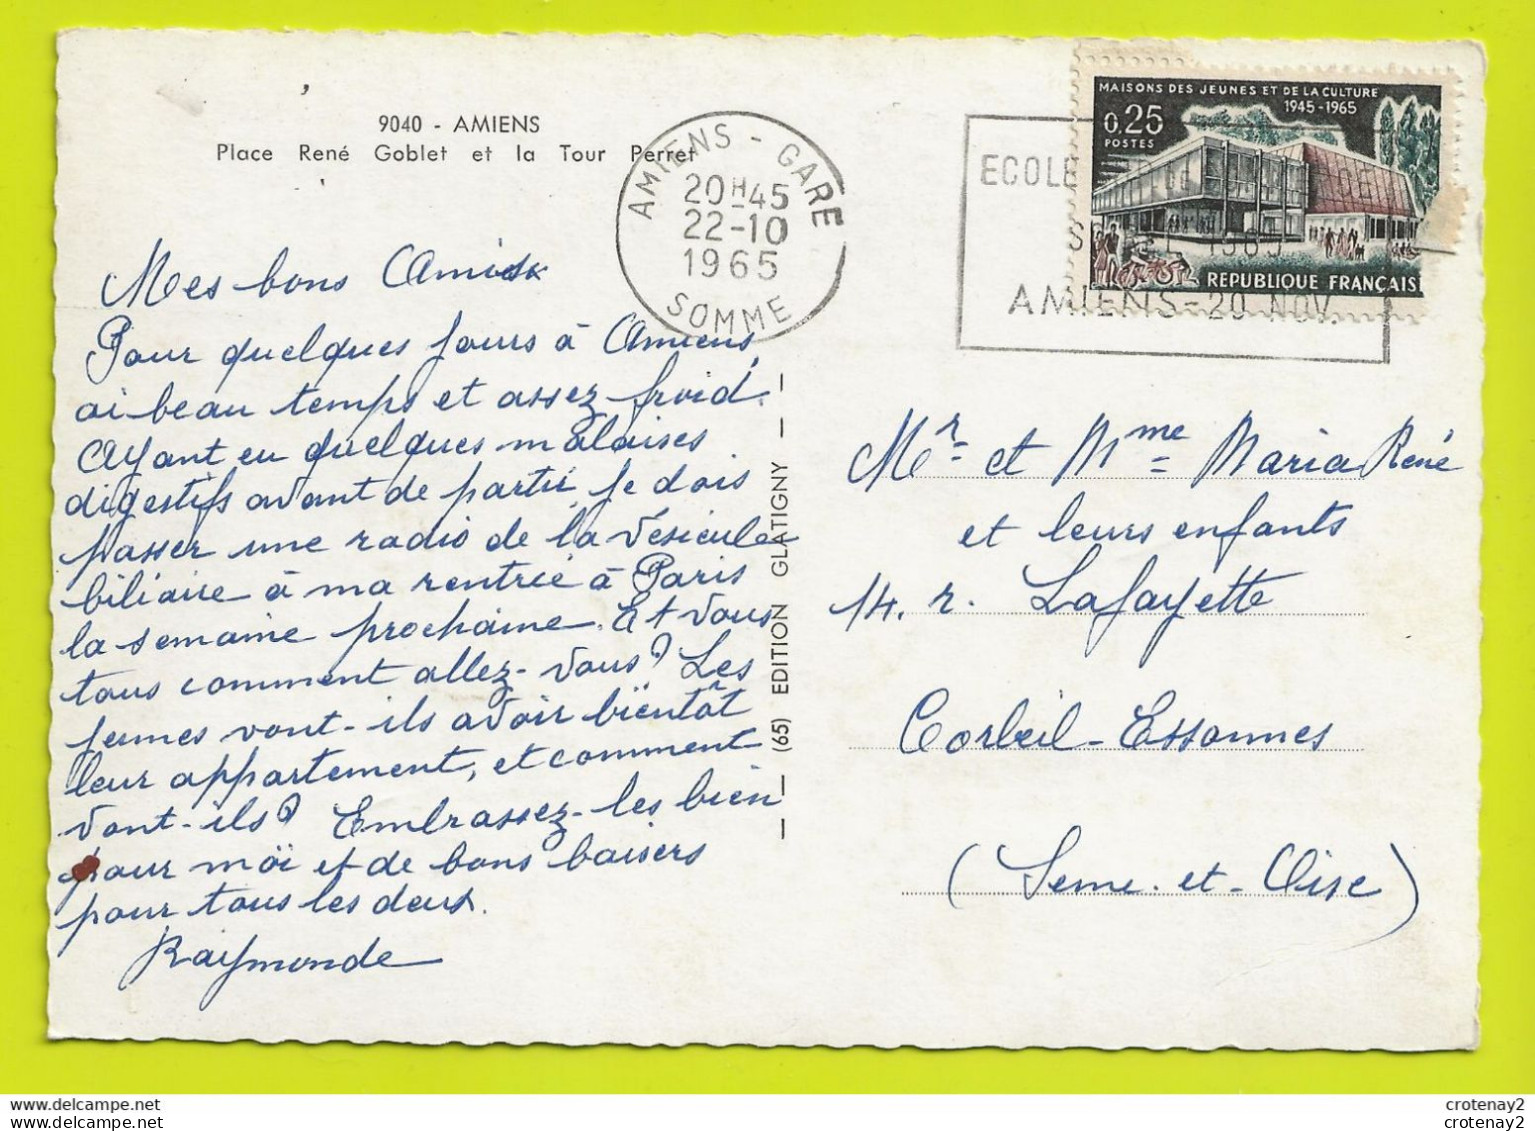 9040 - AMIENS
Place René Goblet et la Tour Perret
AMIENS - GARE
20H45
22-10
1965
SOMME
MAISONS DES JEUNES ET DE LA CULTURE
1945-1965
0,25
POSTES
REPUBLIQUE FRANÇAISE
ECOLE
AMIENS - 20 NOV.
Mes bons Amis
Pour quelques jours à Amiens,
ai beau temps et assez froid.
Ayant eu quelques malaises
digestifs avant de partir je dois
passer une radio de la vésicule
biliaire à ma rentrée à Paris
la semaine prochaine. Et vous
tous comment allez-vous? Les
jeunes vont-ils avoir bientôt
leur appartement, et comment
vont-ils? Embrassez-les bien
pour moi et de bons baisers
pour tous les deux.
Raymonde
(65) EDITION GLATIGNY
Mr et Mme Maria René
et leurs enfants
14. r. Lafayette
Corbeil-Essonnes
(Seine-et-Oise)
crotenay2
crotenay2